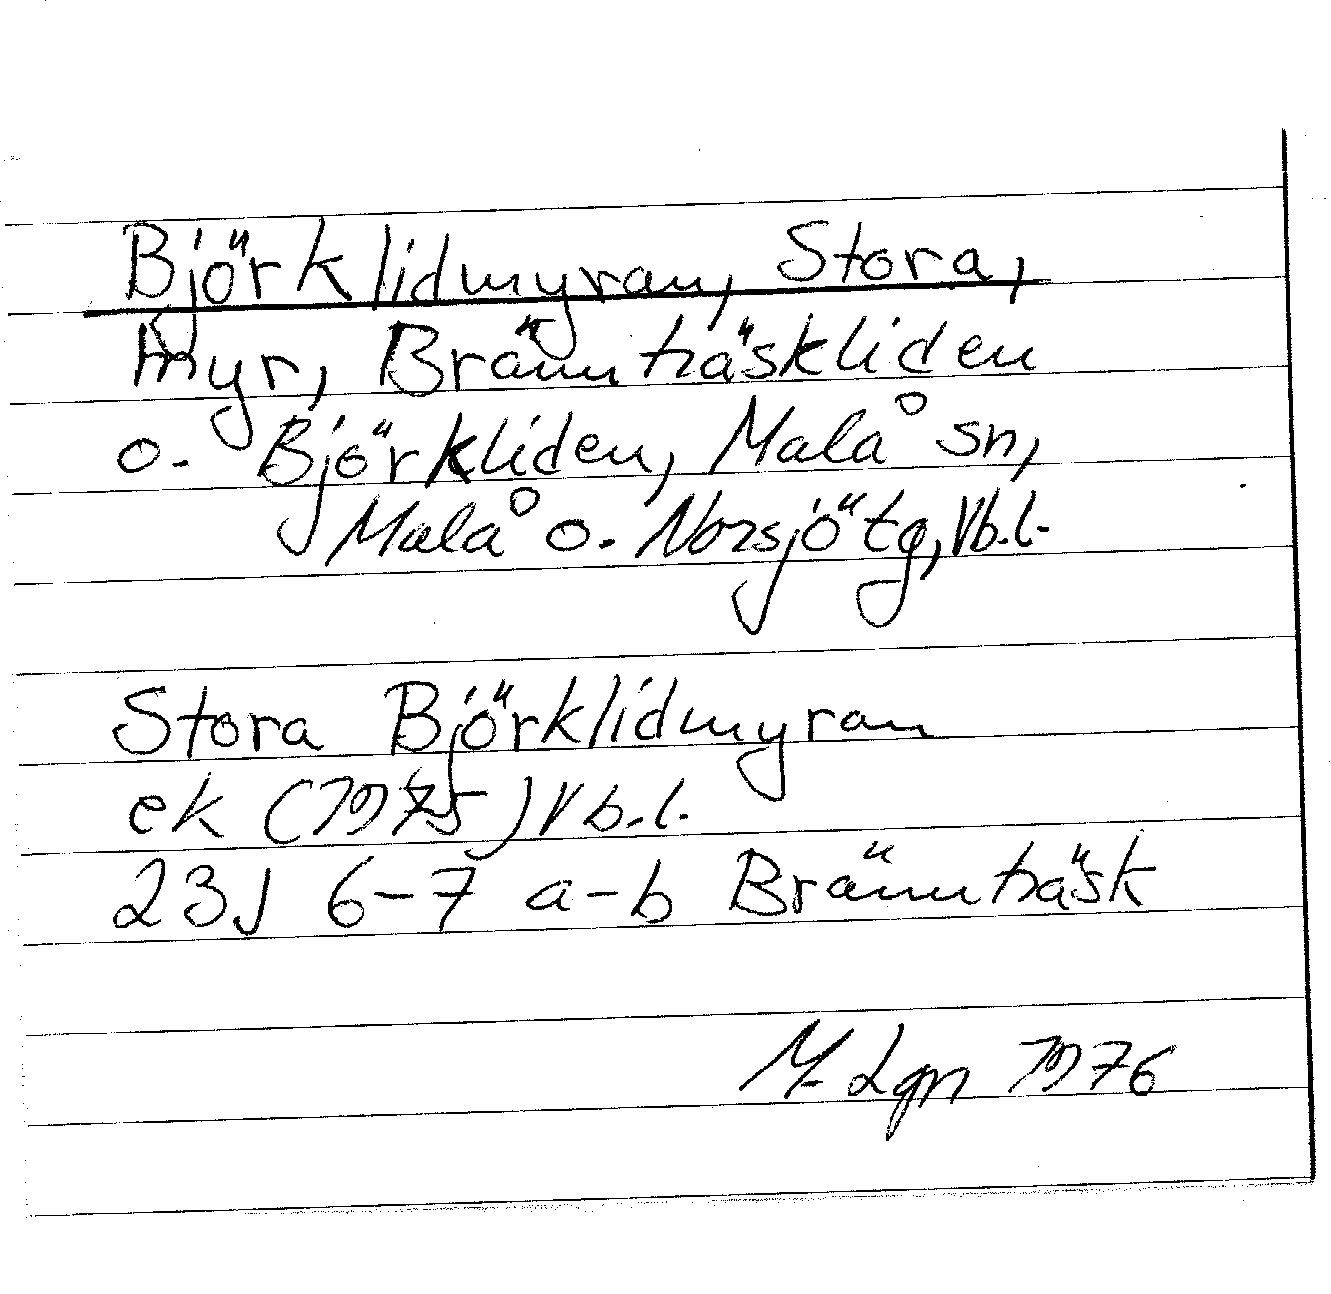 Björklidmyran, Stora,
myr, Brännträskliden
o. Björkliden, Malå sn,
Malå o. Norsjö tg, Vb.l.
Stora Björklidmyran
ek (1975) Vb.l.
23J 6-7 a-b Bränträsk
M. Lgn 1976